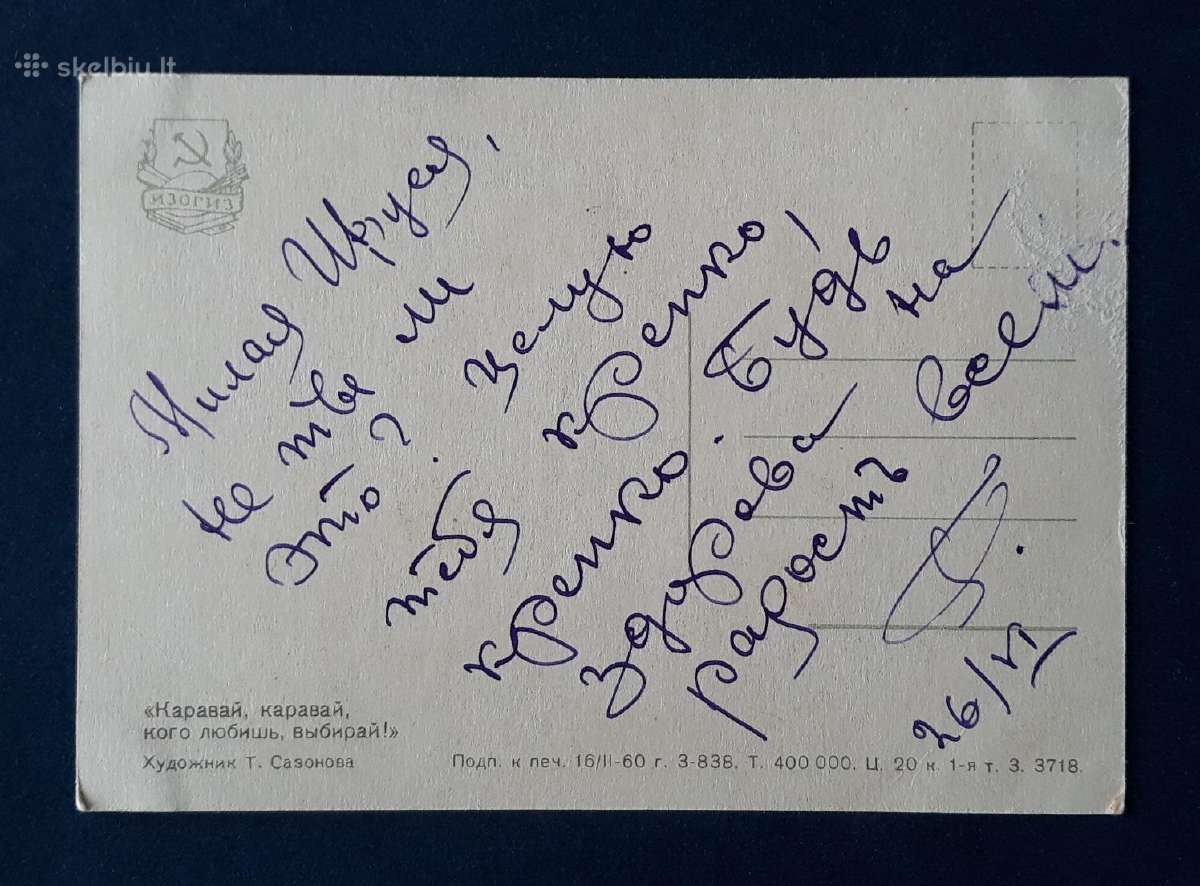 skelbiu.lt
ИЗОГИЗ
Милая Ируся,
не твы ли
это? Целую
тебя крепко,
крепко. Будь
здорова на
радость всем.
26/VI
«Каравай, каравай,
кого любишь, выбирай!»
Художник Т. Сазонова
Подп. к печ. 16/II-60 г. З-838. Т. 400 000. Ц. 20 к. 1-я т. З. 3718.